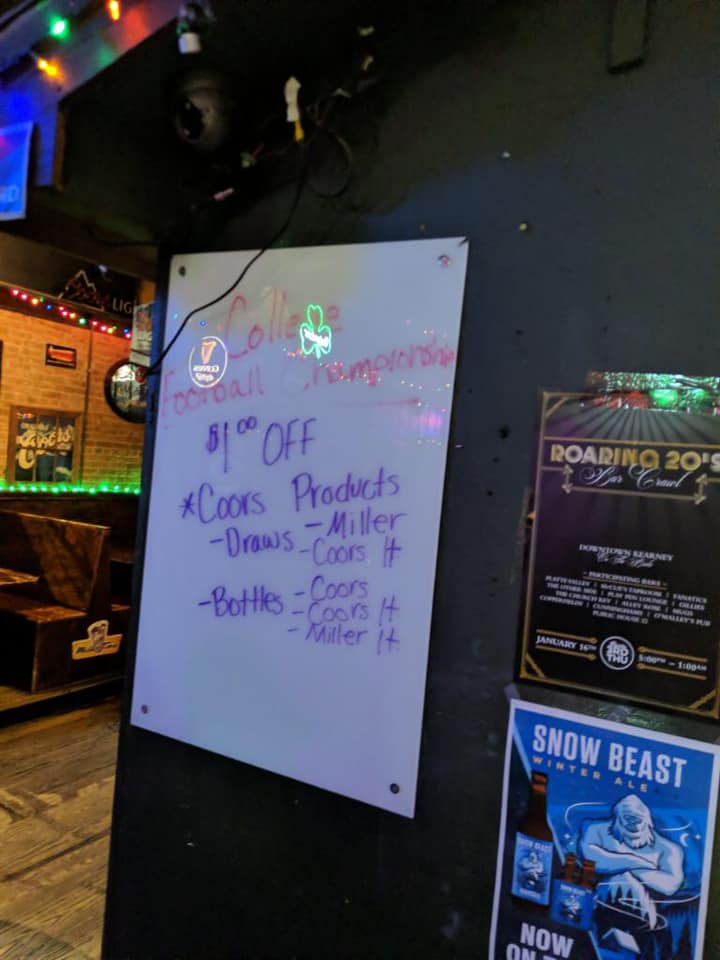 RD
LIG
College
Football Championship
$1.00 OFF
*Coors Products
-Draws -Miller
-Coors lt
-Bottles -Coors
-Coors lt
-Miller lt
GUINNESS
ROARING 20'S
Bar Crawl
DOWNTOWN KEARNEY
On The Bricks
- PARTICIPATING BARS -
PLATTE VALLEY | McCUE'S TAPROOM | FANATICS
THE OTHER SIDE | PLAY PEN LOUNGE | GILLIES
THE CHURCH KEY | ALLEY ROSE | MUGS
COPPERMILL | CUNNINGHAMS | O'MALLEY'S PUB
PUBLIC HOUSE 23
JANUARY 16TH 3RD THU 5:00PM - 1:00AM
SNOW BEAST
WINTER ALE
SNOW BEAST
NOW
ON